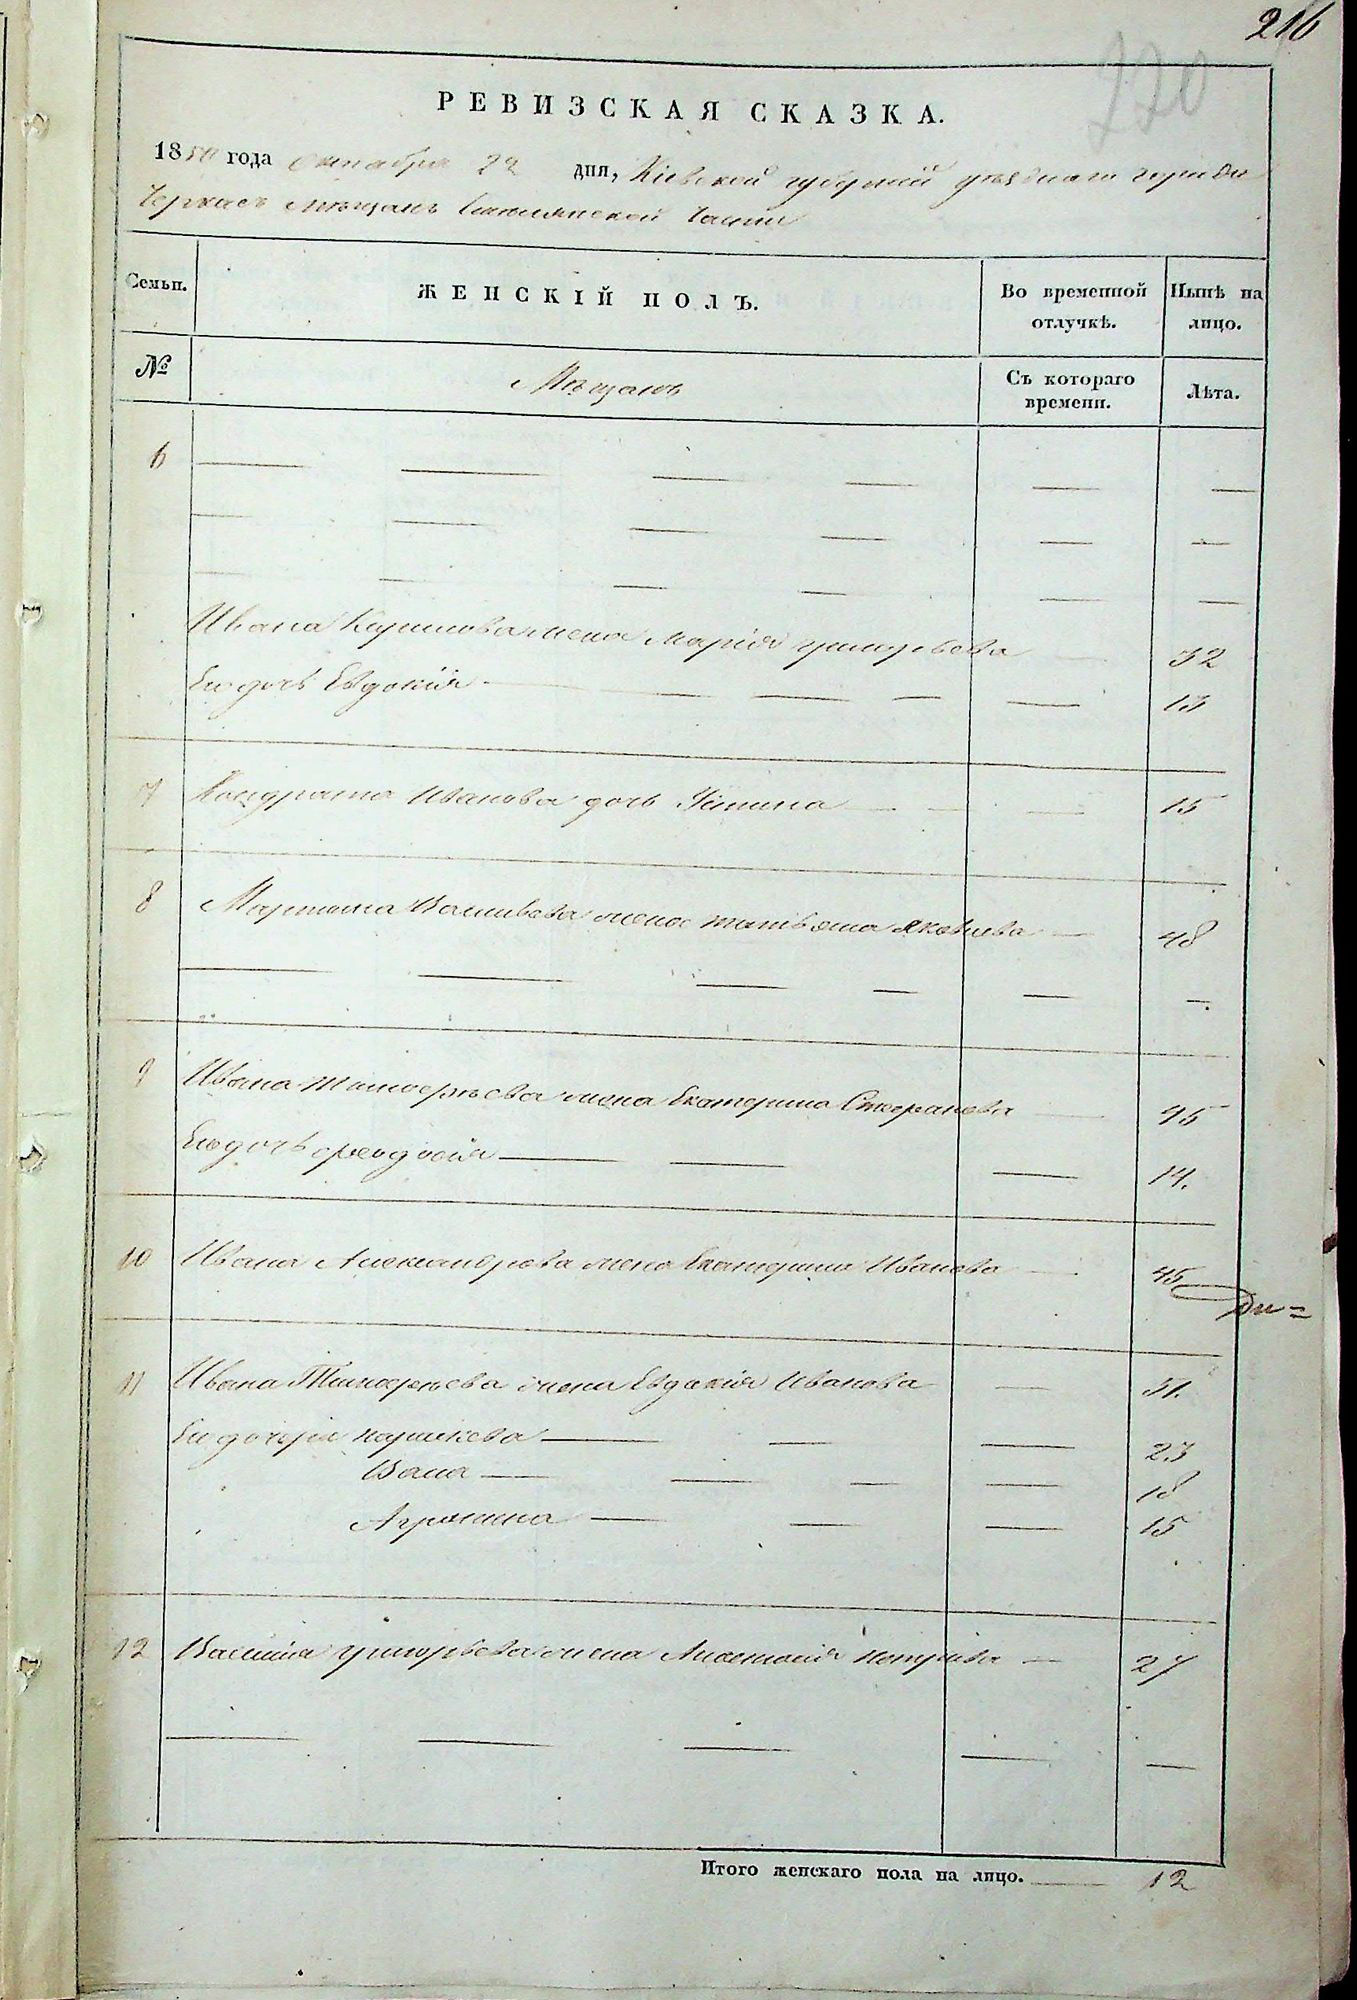 216
220
РЕВИЗСКАЯ СКАЗКА.
1850 года Октября 22 дня, Кіевской губерніи уѣзднаго города
Черкасъ Мѣщанъ части
Семьи. ЖЕНСКІЙ ПОЛЪ. Во временной отлучкѣ. Нынѣ на лицо.
№ Мѣщанъ Съ котораго времени. Лѣта.
6
Ивана Карпилова жена Марія Григорьева 32
Его дочь Евдокія 13
7 Кондрата Иванова дочь Устина 15
8 Мартина Васильева жена Татьяна Яковлева 48
9 Ивана Тимоѳѣева жена Екатерина Стефанова 45
Его дочь Ѳеодосія 14.
10 Ивана Александрова жена Екатерина Иванова 45
11 Ивана Тимоѳѣева жена Евдокія Иванова 51.
Его дочери 23
18
Агрипина 15
12 Василія Григорьева жена Анастасія Петрова 27
Итого женскаго пола на лицо. 12